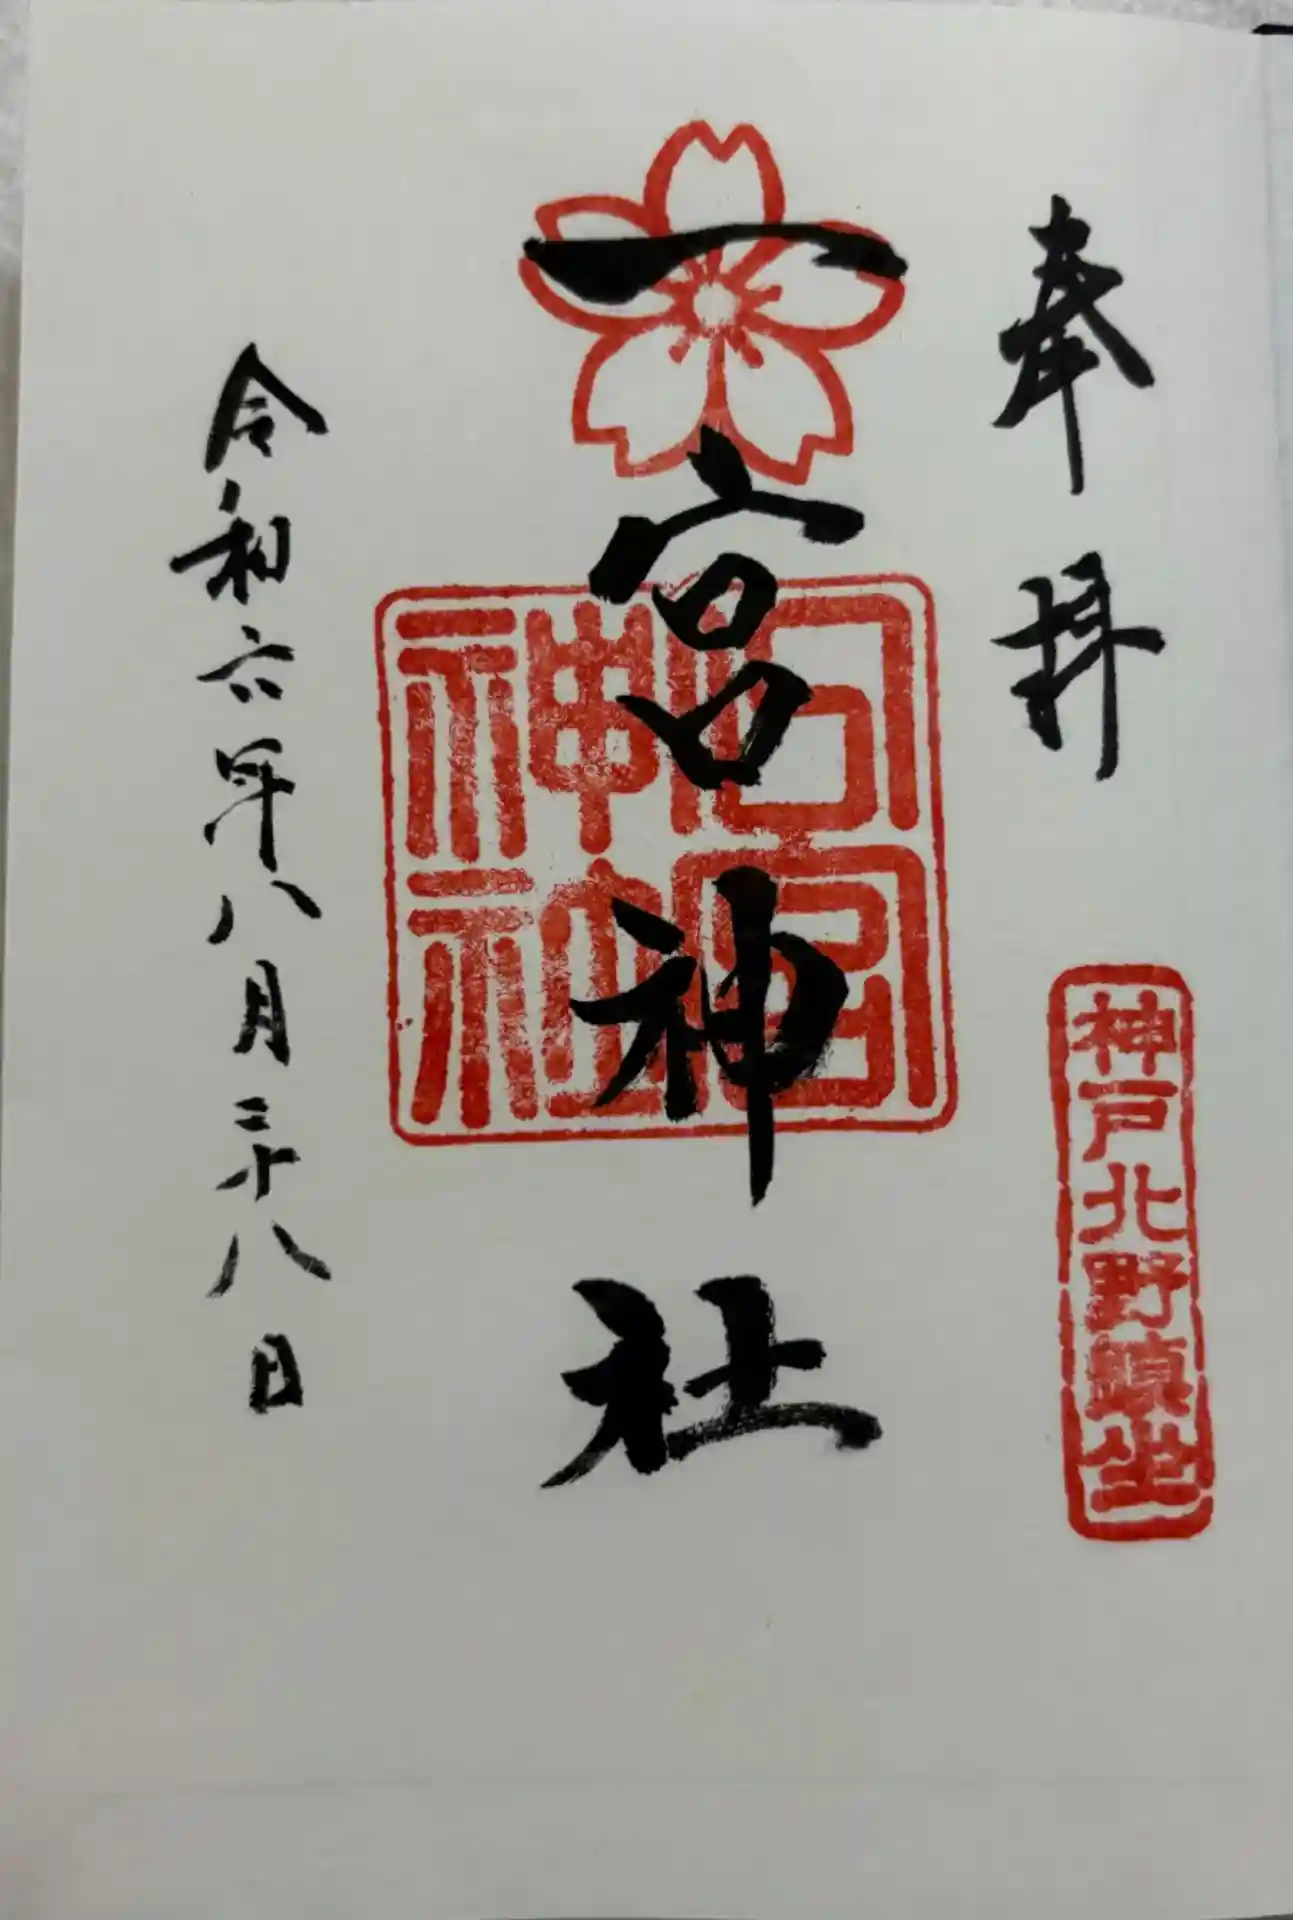 奉拝
神戸北野鎮坐
一宮神社
神社
令和六年八月二十八日